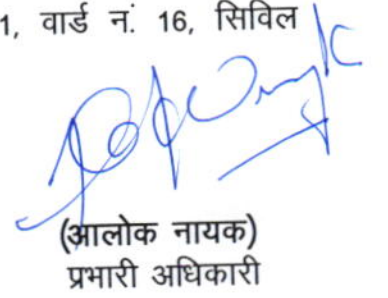 1, वार्ड नं. 16, सिविल
(आलोक नायक)
प्रभारी अधिकारी